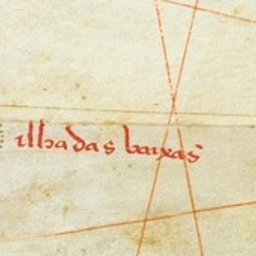 ilha das baixas